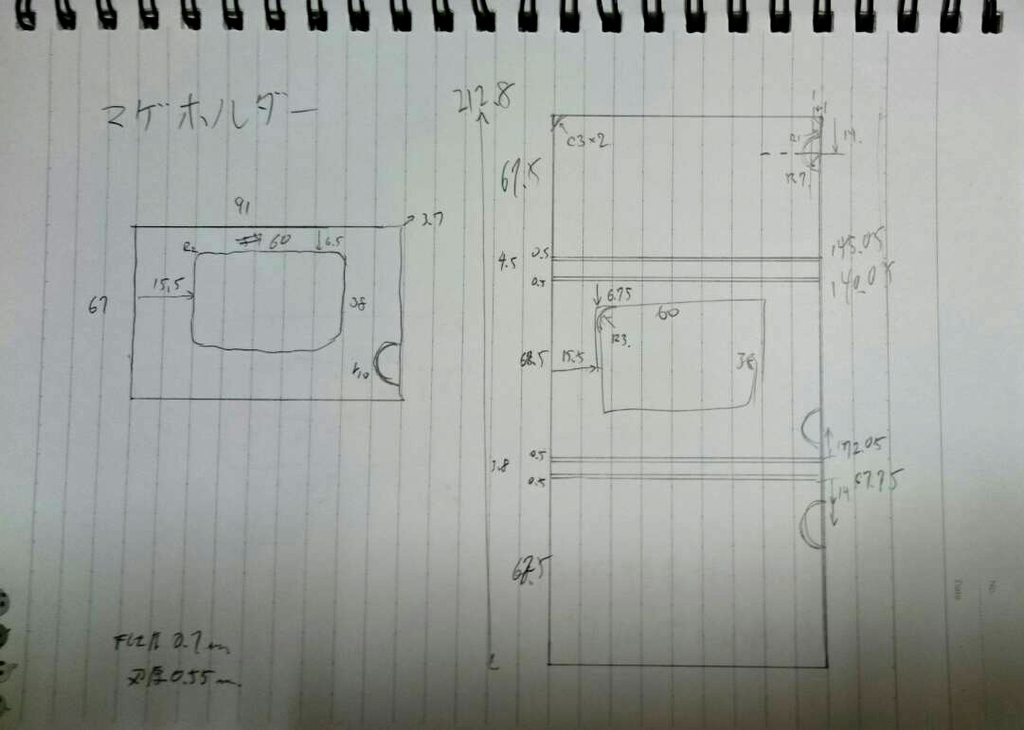 マグホルダー
212.8
C3×2
14.
R7
67.5
91
2.7
R2
60
6.5
15.5
67
38
R10
145.05
4.5
0.5
140.05
0.5
6.75
60
R3.
68.5
15.5
38
72.05
3.8
0.5
67.75
0.5
14
67.5
0.7m
刃厚0.55m